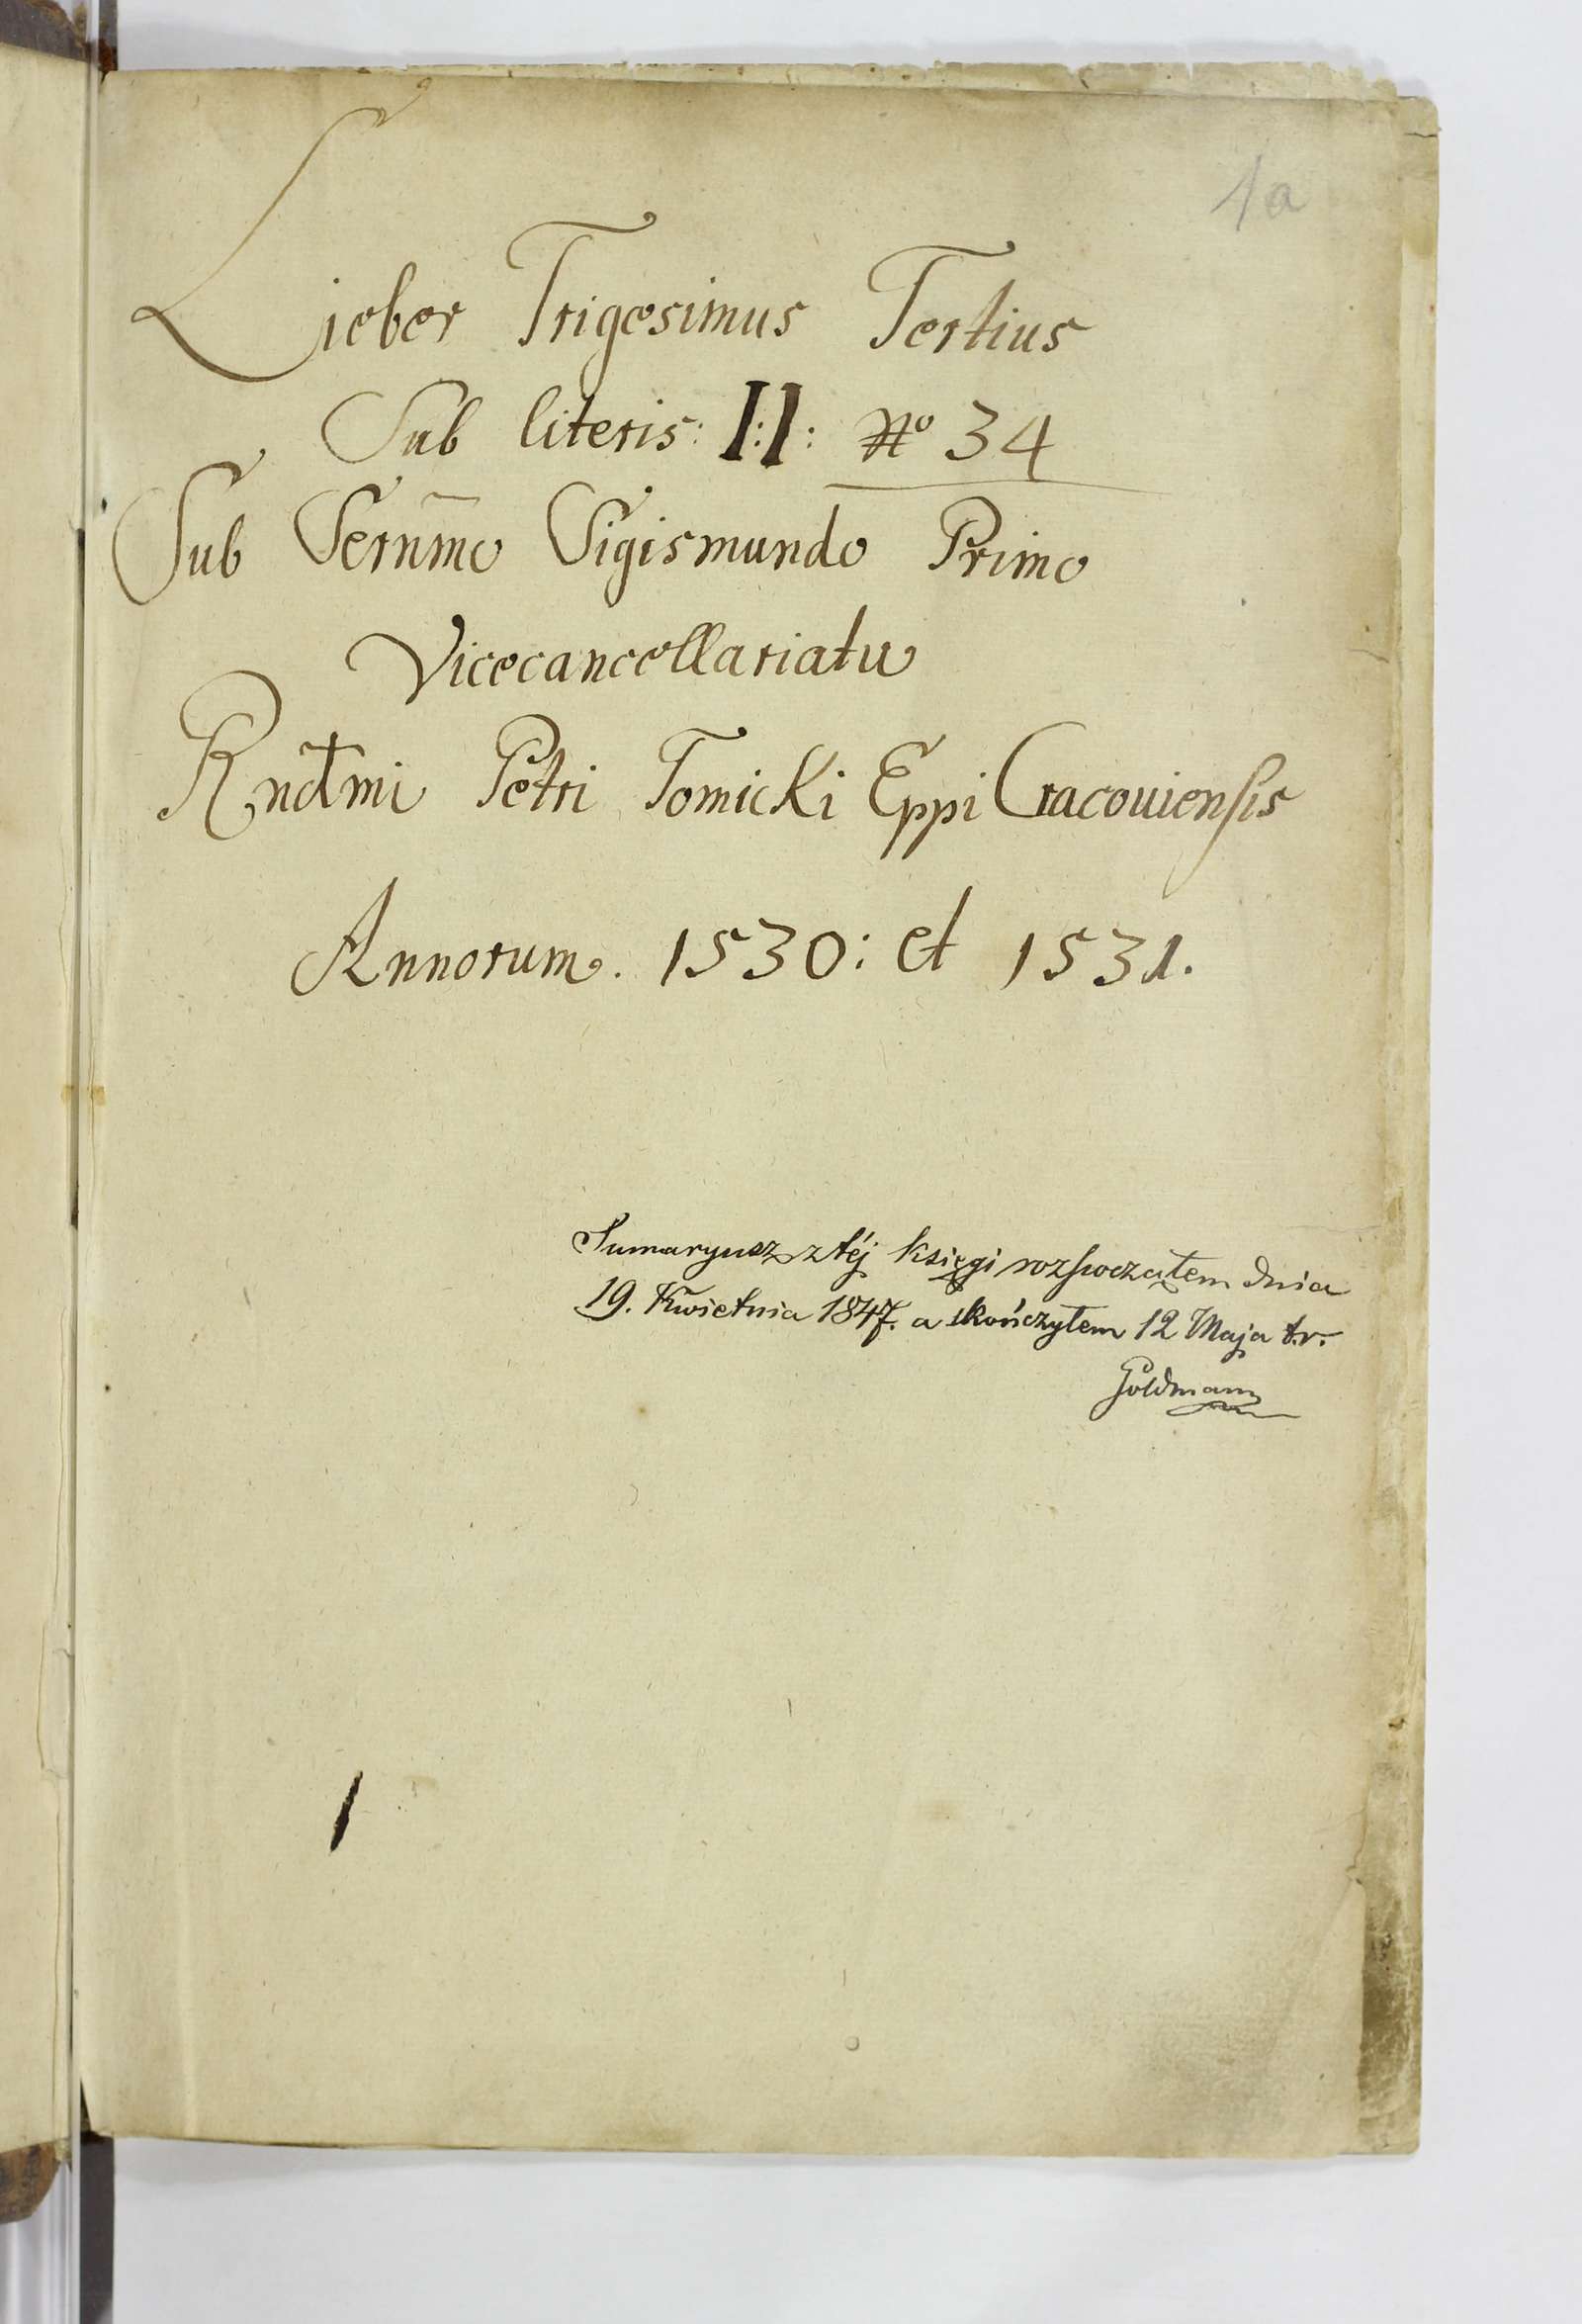 1a
Lieber Trigesimus Tertius
Sub literis: I:I: No 34
Sub Sernm̃o Sigismundo Primo
Vicecancellariatu
Rndmi Petri Tomicki Eppi Cracouiensis
Annorum. 1530: et 1531.
Sumaryusz z téj księgi rozpocząłem dnia
19. Kwietnia 1847. a skończyłem 12 Maja t.r.
Goldmann